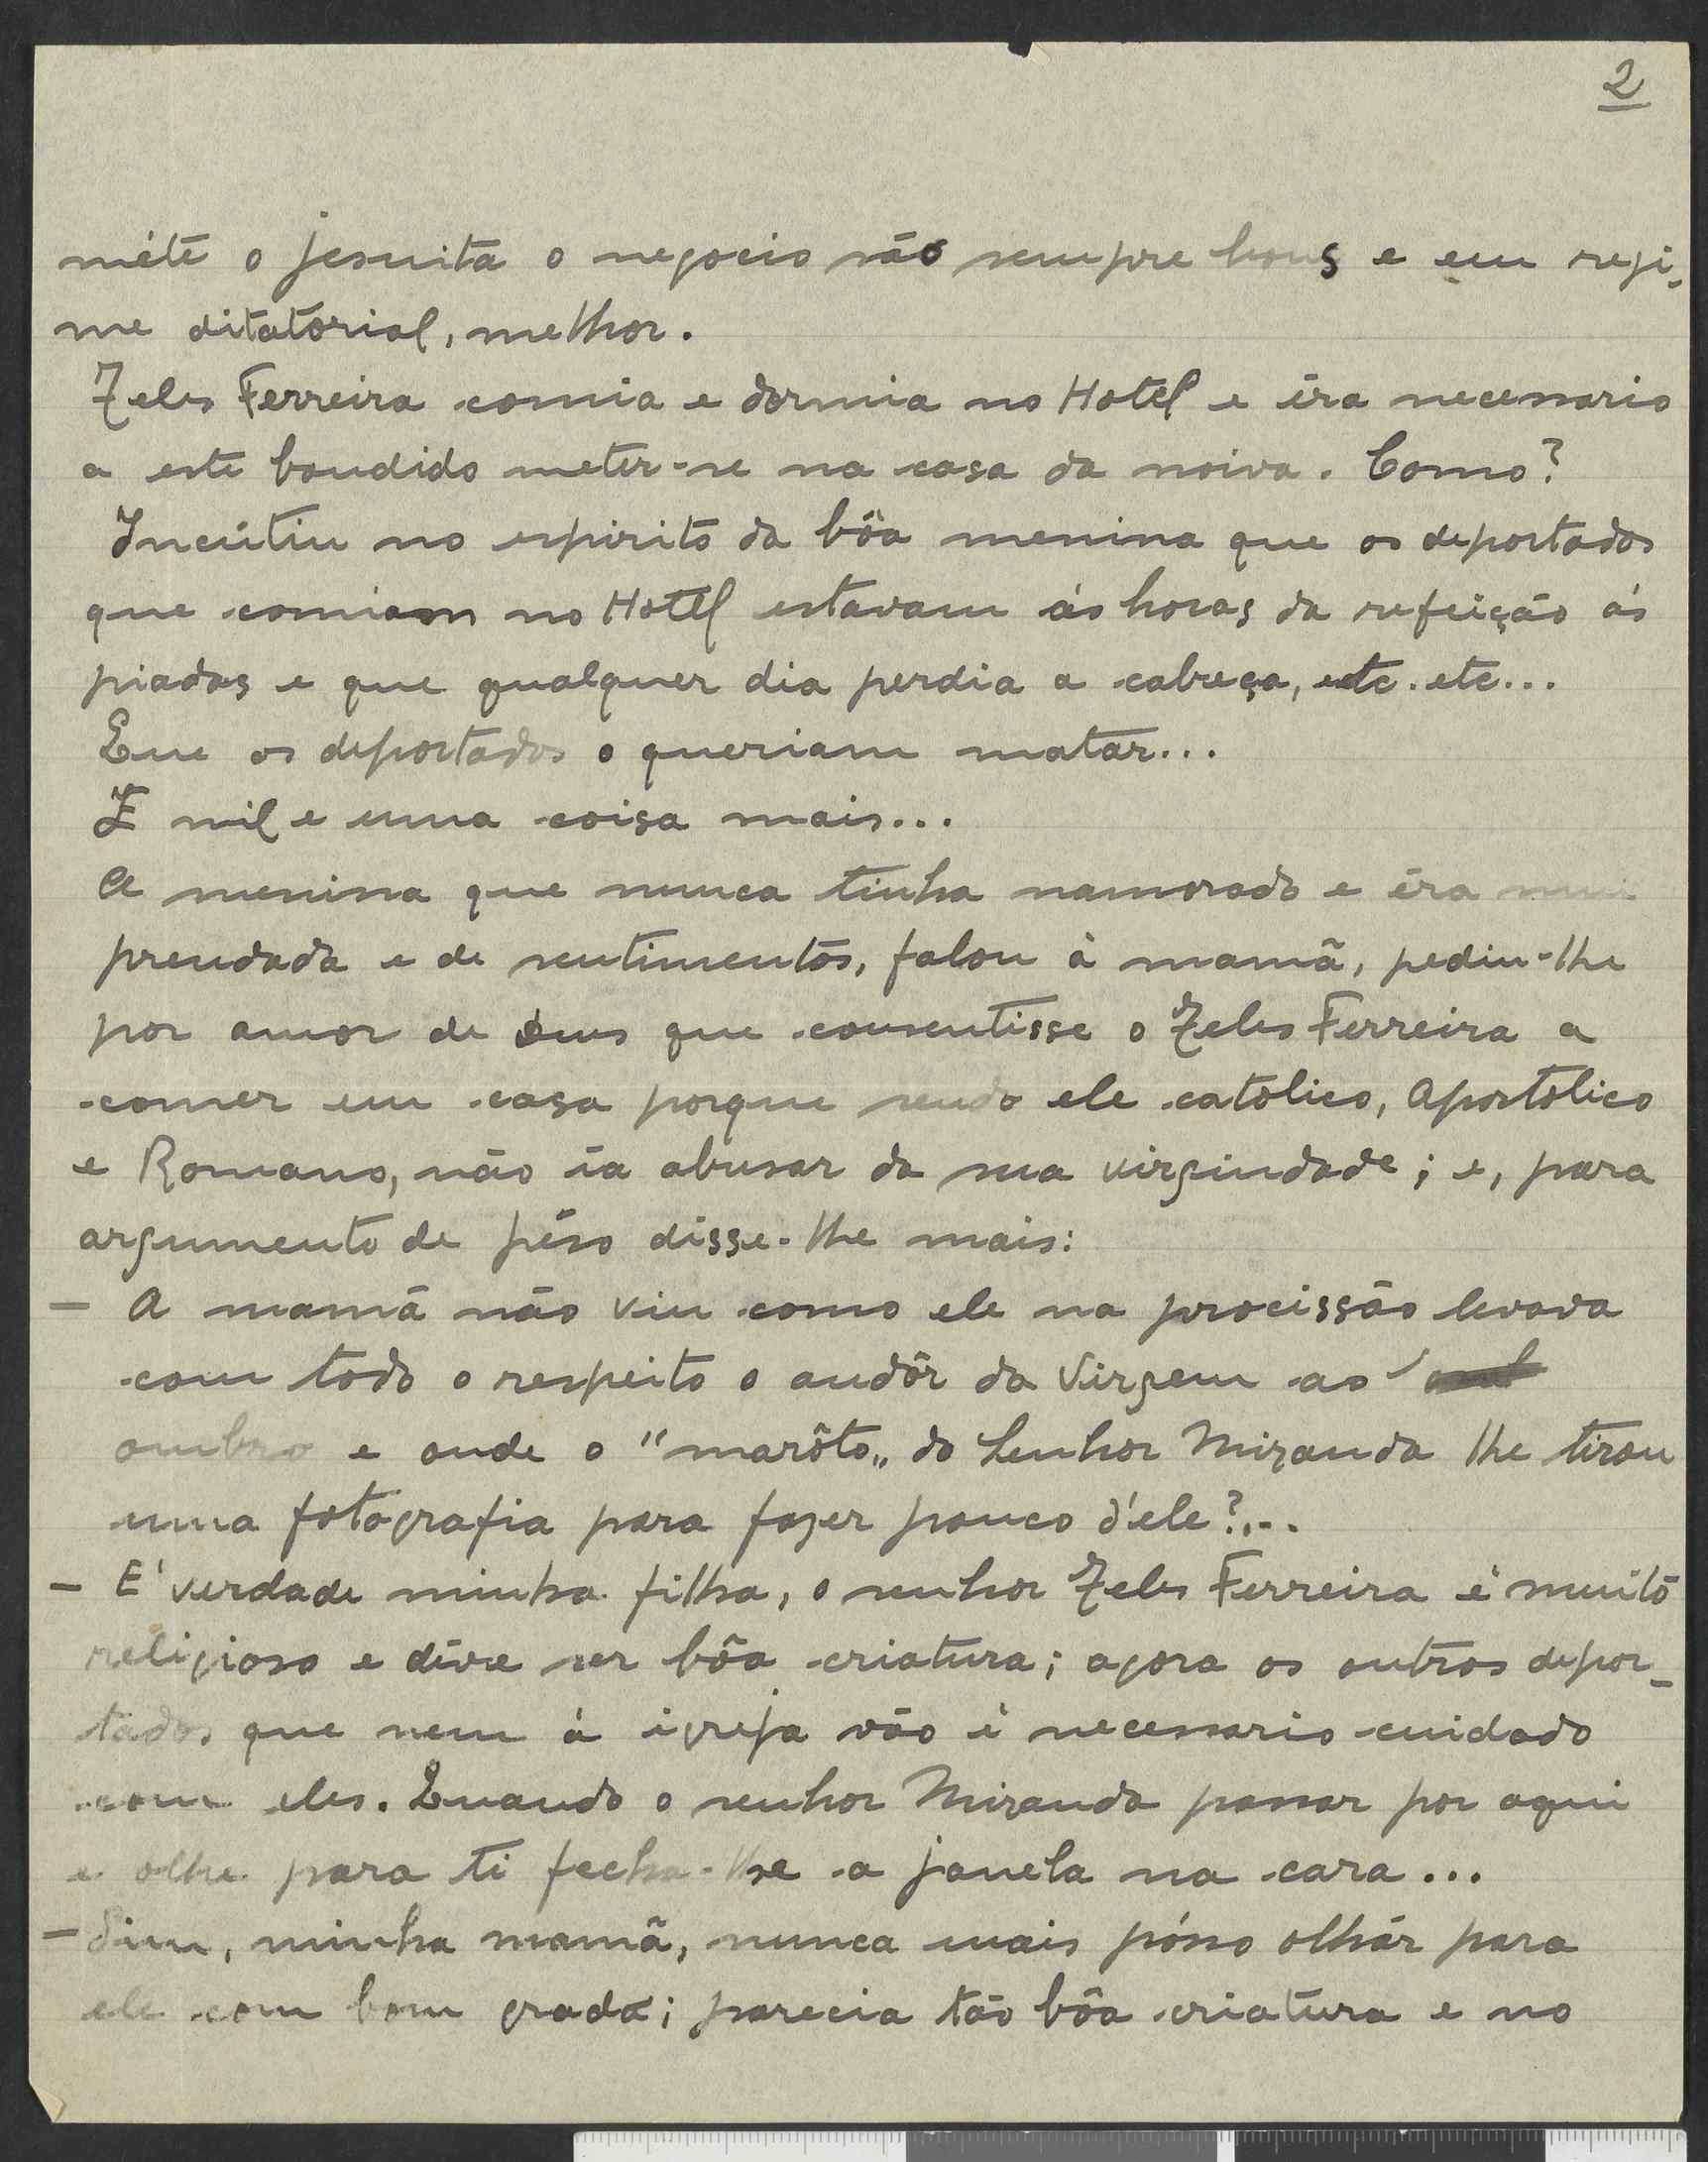 2
méte o jesuita o negocio são sempre bons e em regi-
me ditatorial, melhor.
Zeles Ferreira comia e dormia no Hotel e éra necessario
a este bandido meter-se na casa da noiva. Como?
Incútiu no espirito da bôa menina que os deportados
que comiam no Hotel estavam ás horas da refeição ás
piadas e que qualquer dia perdia a cabeça, etc. etc...
Que os deportados o queriam matar...
E mil e uma coisa mais...
A menina que nunca tinha namorado e éra mui
prendada e de sentimentos, falou à mamã, pediu-lhe
por amor de Deus que consentisse o Zeles Ferreira a
comer em casa porque sendo ele catolico, Apostolico
e Romano, não ia abusar da sua virgindade; e, para
argumento de pêso disse-lhe mais:
— A mamã não viu como ele na procissão levava
com todo o respeito o andôr da Virgem ao
ombro e onde o "marôto" do Senhor Miranda lhe tirou
uma fotografia para fazer pouco d'ele?...
— E' verdade minha filha, o senhor Zeles Ferreira é muito
religioso e déve ser bôa criatura; agora os outros depor-
tados que nem á igreja vão é necessario cuidado
com eles. Quando o senhor Miranda passar por aqui
e olhe para ti fecha-lhe a janela na cara...
— Sim, minha mamã, nunca mais pósso olhár para
ele com bom grado; parecia tão bôa criatura e no